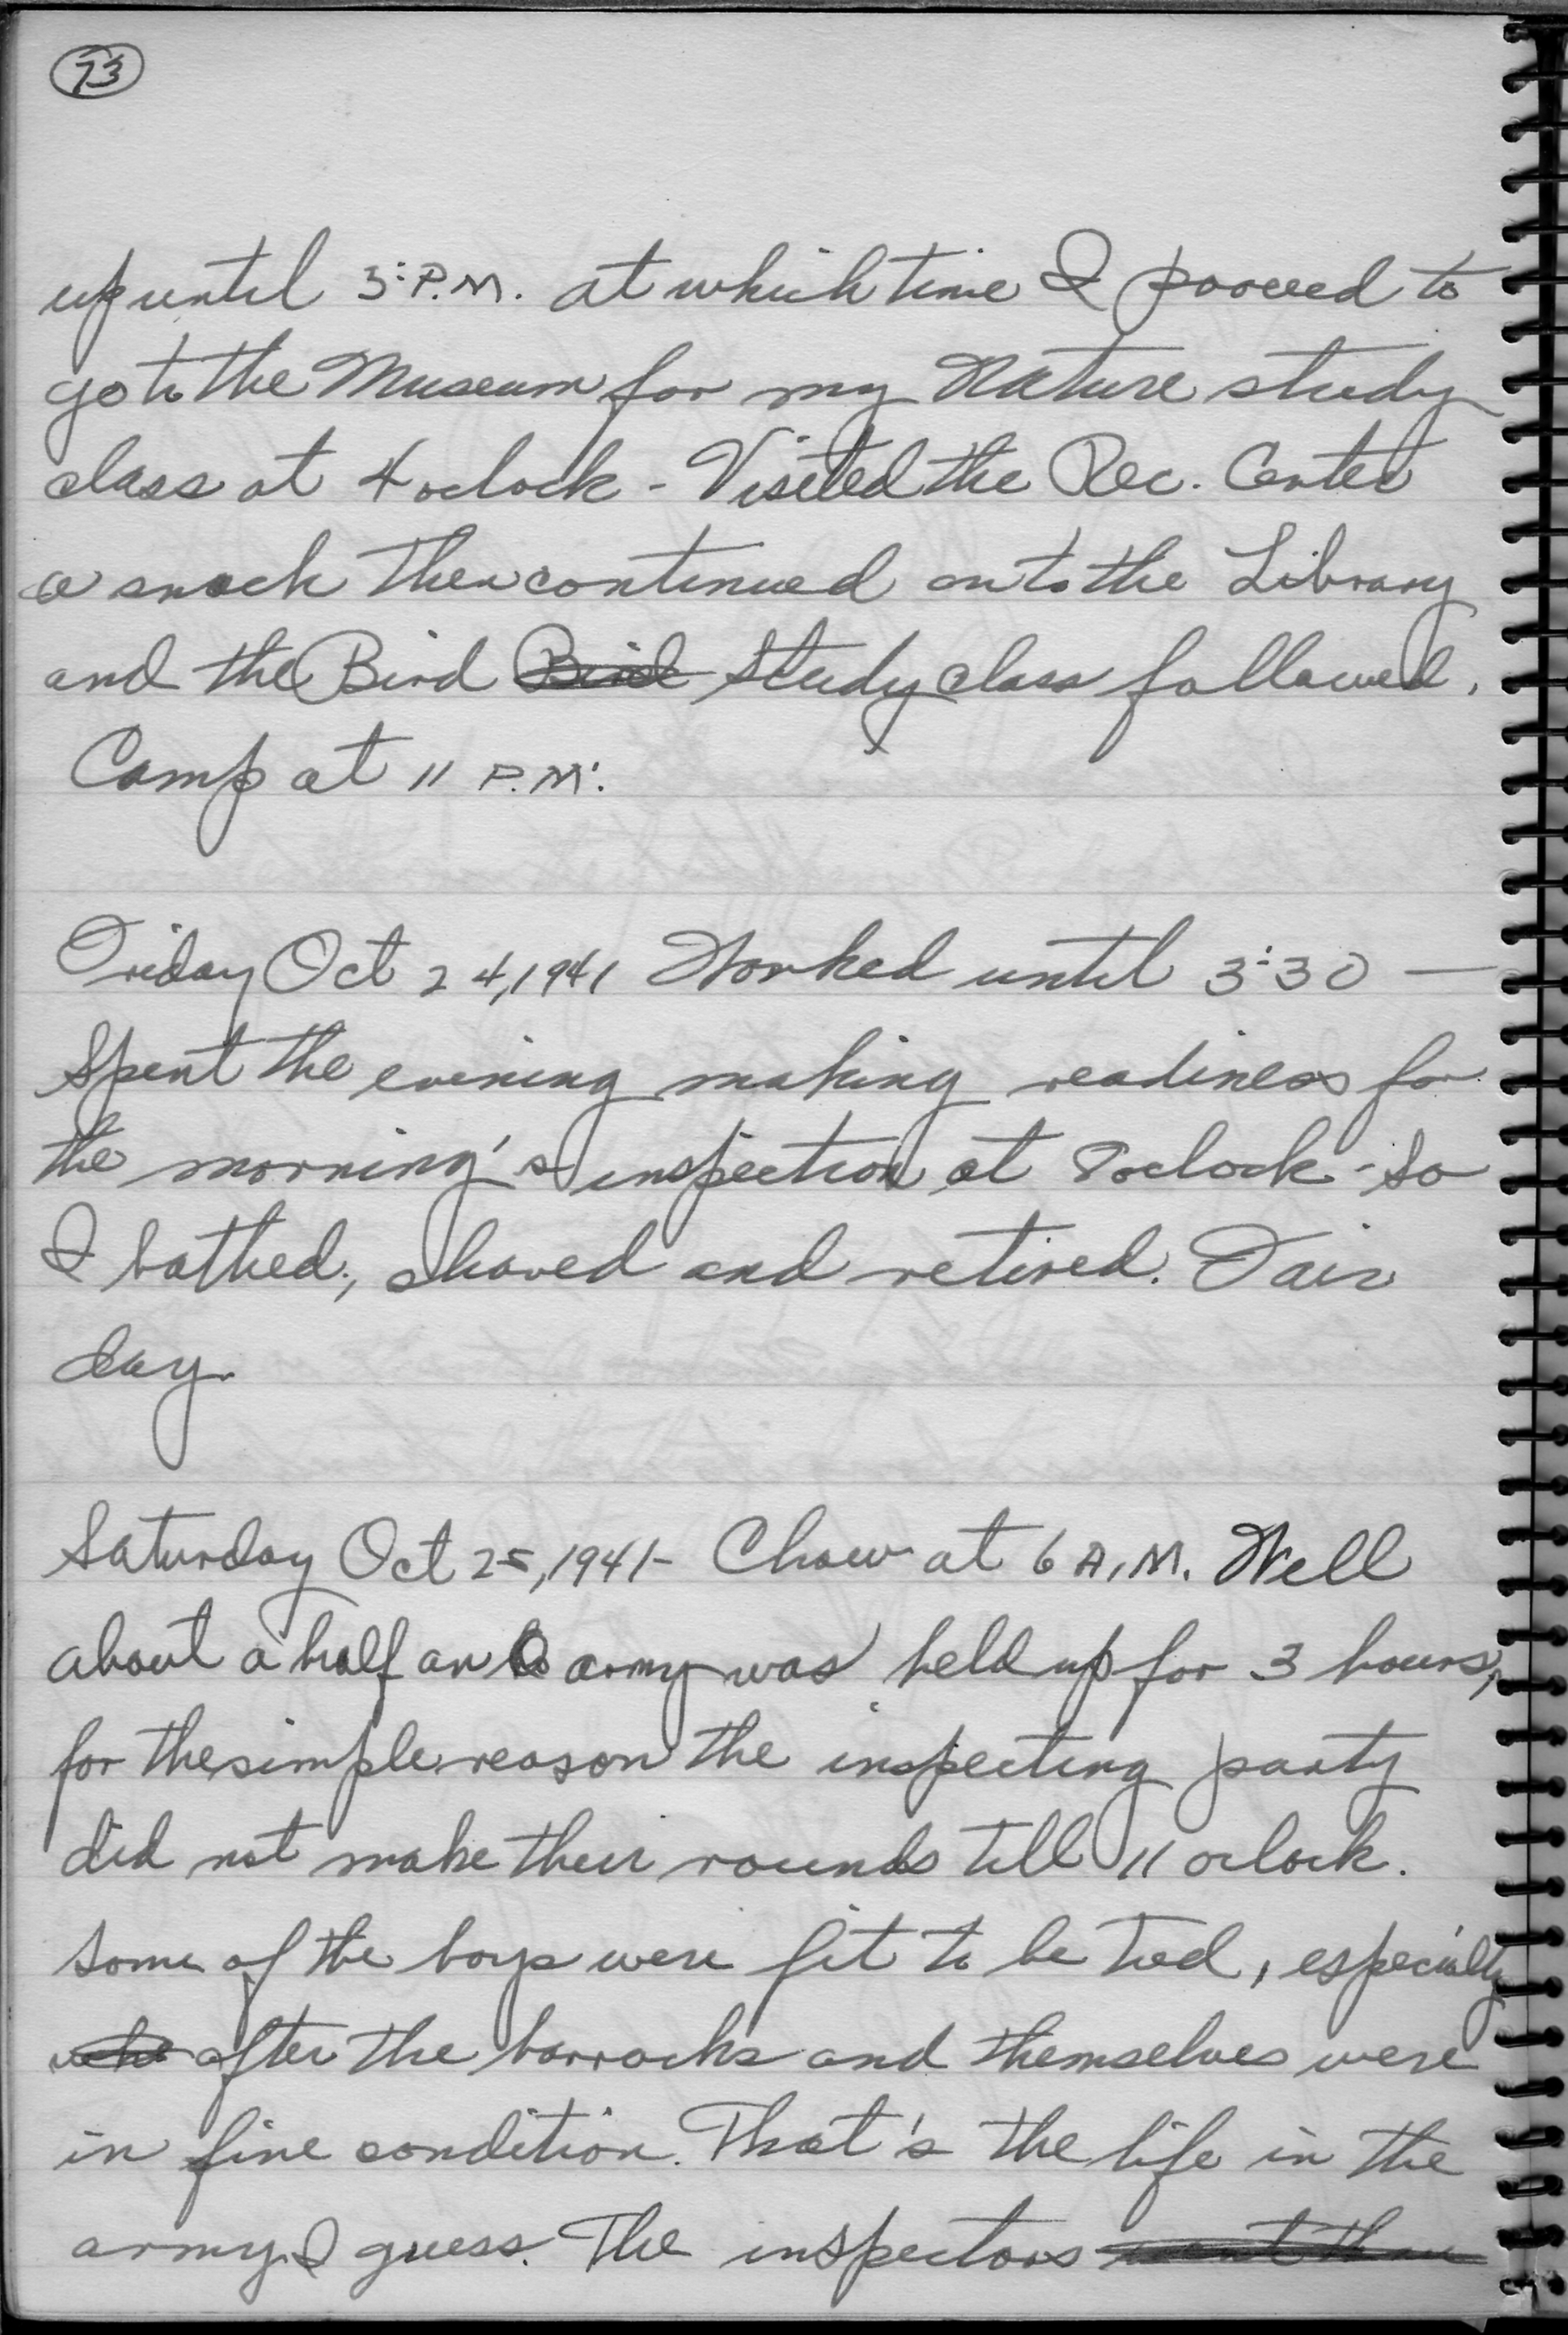 73
up until 3: P.M. at which time I pooceed to
go to the Museum for my Nature study
class at 4 oclock - Visited the Rec. Center
a snack then continued on to the Library
and the Bird Bird Study class followed.
Camp at 11 P.M.
Friday Oct 24, 1941 Worked until 3:30 —
Spent the evening making readiness for
the morning's inspection at 8 oclock - so
I bathed, shaved and retired. Fair
day.
Saturday Oct 25, 1941 - Chow at 6 A.M. Well
about a half an army was held up for 3 hours,
for the simple reason the inspecting party
did not make their rounds till 11 oclock.
Some of the boys were fit to be tied, especially
after the barracks and themselves were
in fine condition. That's the life in the
army I guess. The inspectors went thru